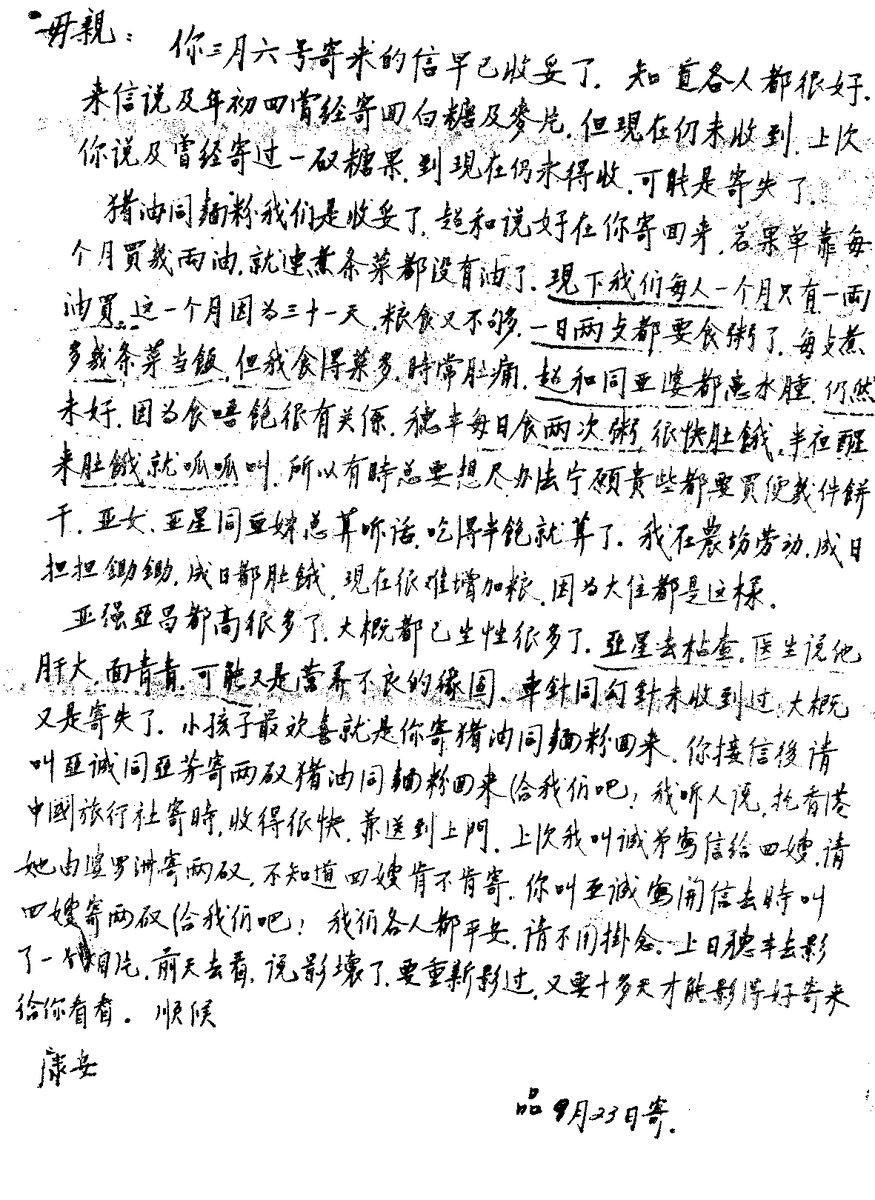 母親：你三月六号寄来的信早已收妥了．知道各人都很好．
来信说及年初四嘗经寄回白糖及麥片．但現在仍未收到．上次
你说及曾经寄过一砇糖果．到現在仍未得收．可能是寄失了．
猪油同麵粉我们是收妥了．超和说好在你寄回来．若果单靠每
个月買幾両油．就連煮条菜都没有油了．現下我们每人一个月只有一両
油買．这一个月因为三十一天．粮食又不够．一日両歺都要食粥了．每歺煮
多幾条菜当飯．但我食得菜多．時常肚痛．超和同亚婆都患水腫．仍然
未好．因为食唔飽很有关係．穗丰每日食两次粥．很快肚餓．半夜醒
来肚餓就呱呱叫．所以有時总要想尽办法宁願貴些都要買便幾件餅
干．亚女．亚星同亚妹总算听话．吃得半飽就算了．我在農场劳动．成日
担担鋤鋤．成日都肚餓．現在很难增加粮．因为大住都是这樣．
亚强亚昌都高很多了．大概都已生性很多了．亚星去检查．医生说他
肝大．面青青．可能又是营养不良的缘固．車針同勾針未收到过．大概
又是寄失了．小孩子最欢喜就是你寄猪油同麵粉回来．你接信後請
叫亚诚同亚芳寄两砇猪油同麵粉回来给我们吧！我听人说．托香港
中國旅行社寄時．收得很快．兼送到上門．上次我叫诚弟寫信给四嫂．请
她由婆罗洲寄两砇．不知道四嫂肯不肯寄．你叫亚诚寫開信去時叫
四嫂寄两砇给我们吧！我们各人都平安．请不用掛念．上日穗丰去影
了一张相片．前天去看．说影壞了．要重新影过．又要十多天才能影得好寄来
给你看看．順候
康安
品 9月23日寄．